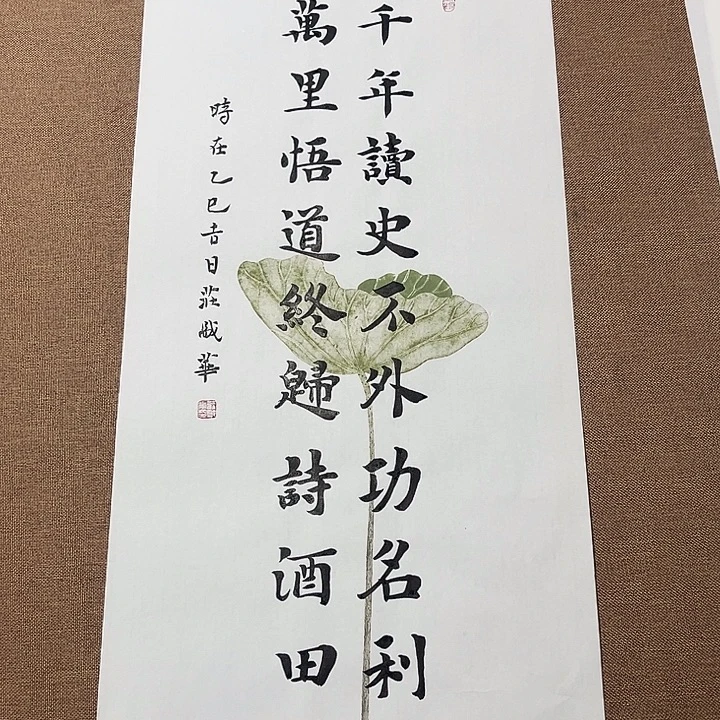 千年讀史不外功名利
萬里悟道終歸詩酒田
時在乙巳吉日莊威華